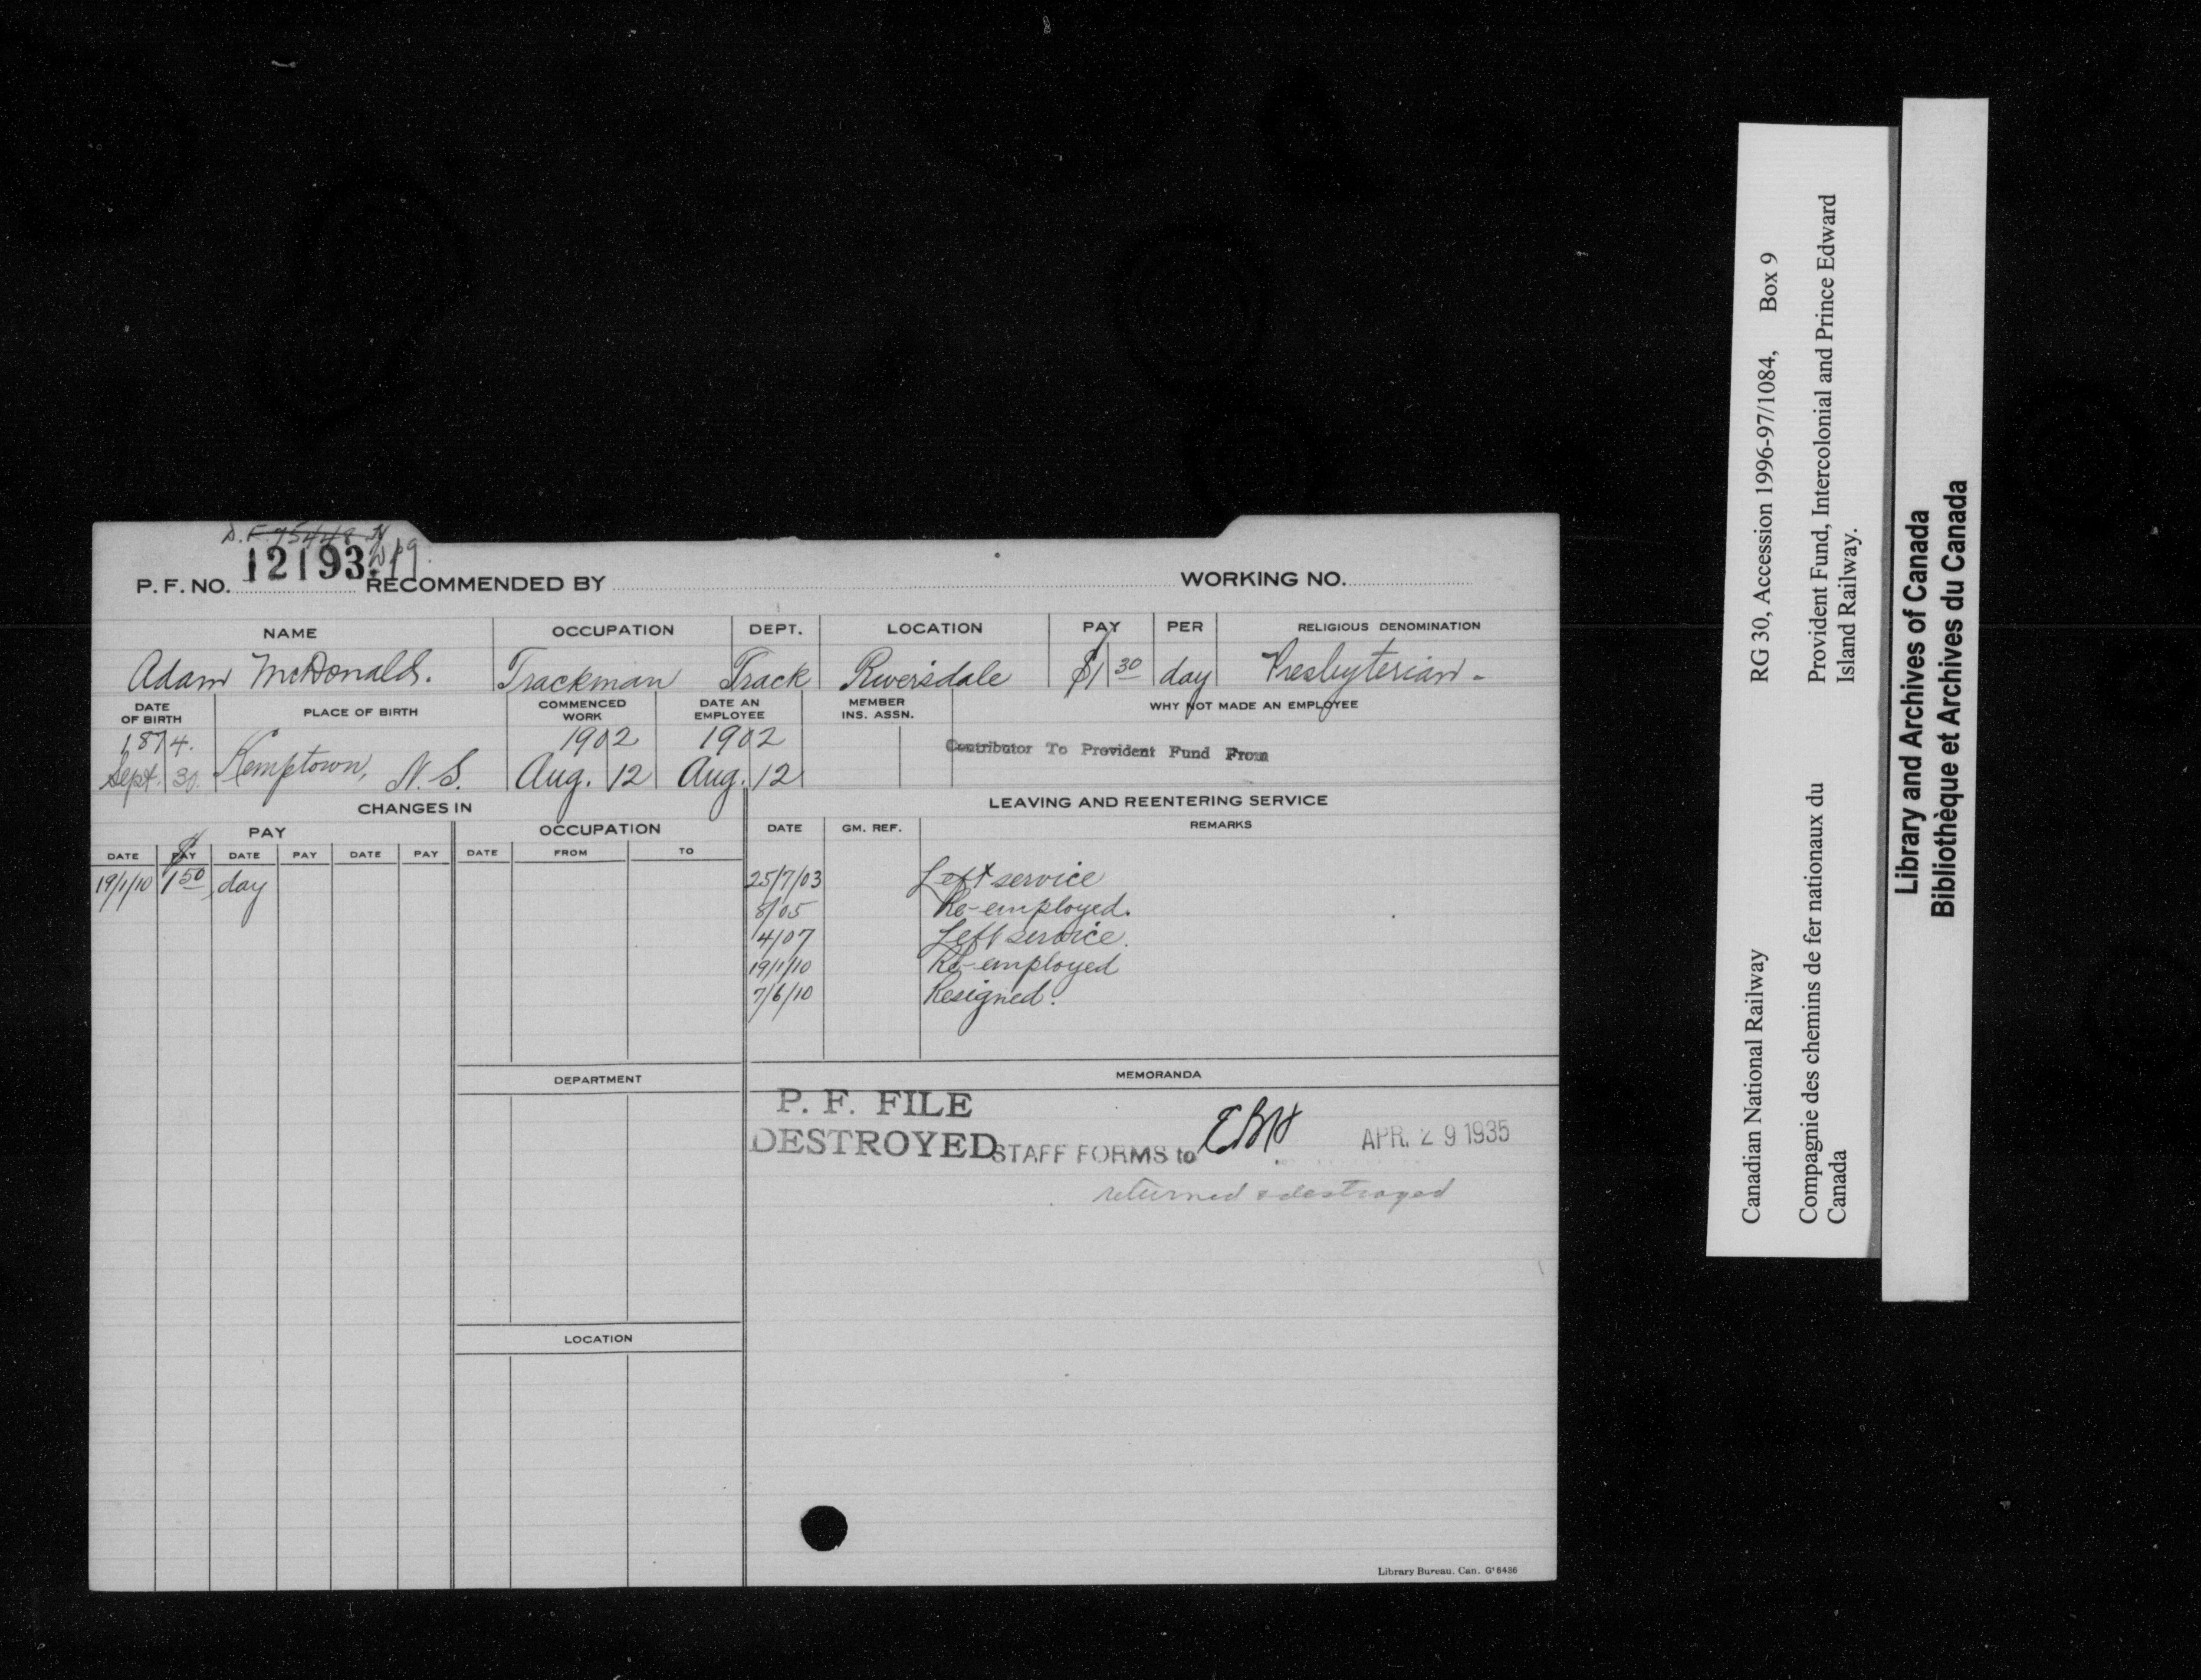 D.F. 75448 N
P. F. NO. 12193 RECOMMENDED BY WORKING NO.
NAME OCCUPATION DEPT. LOCATION PAY PER RELIGIOUS DENOMINATION
Adam McDonald. Trackman Track Riversdale $1 30 day Presbyterian -
DATE OF BIRTH PLACE OF BIRTH COMMENCED WORK DATE AN EMPLOYEE MEMBER INS. ASSN. WHY NOT MADE AN EMPLOYEE
1874. 1902 1902
Sept. 30. Kemptown, N. S. Aug. 12 Aug. 12 Contributor To Provident Fund From
CHANGES IN LEAVING AND REENTERING SERVICE
PAY OCCUPATION DATE GM. REF. REMARKS
DATE PAY DATE PAY DATE PAY DATE FROM TO
19/1/10 $1 50 day
25/7/03 Left service
8/05 Re-employed.
4/07 Left service.
19/1/10 Re-employed
7/6/10 Resigned.
DEPARTMENT MEMORANDA
P. F. FILE
DESTROYED STAFF FORMS to EBH APR. 29 1935
returned & destroyed
LOCATION
Library Bureau. Can. G'6436
Canadian National Railway RG 30, Accession 1996-97/1084, Box 9
Compagnie des chemins de fer nationaux du Provident Fund, Intercolonial and Prince Edward
Canada Island Railway.
Library and Archives of Canada
Bibliothèque et Archives du Canada